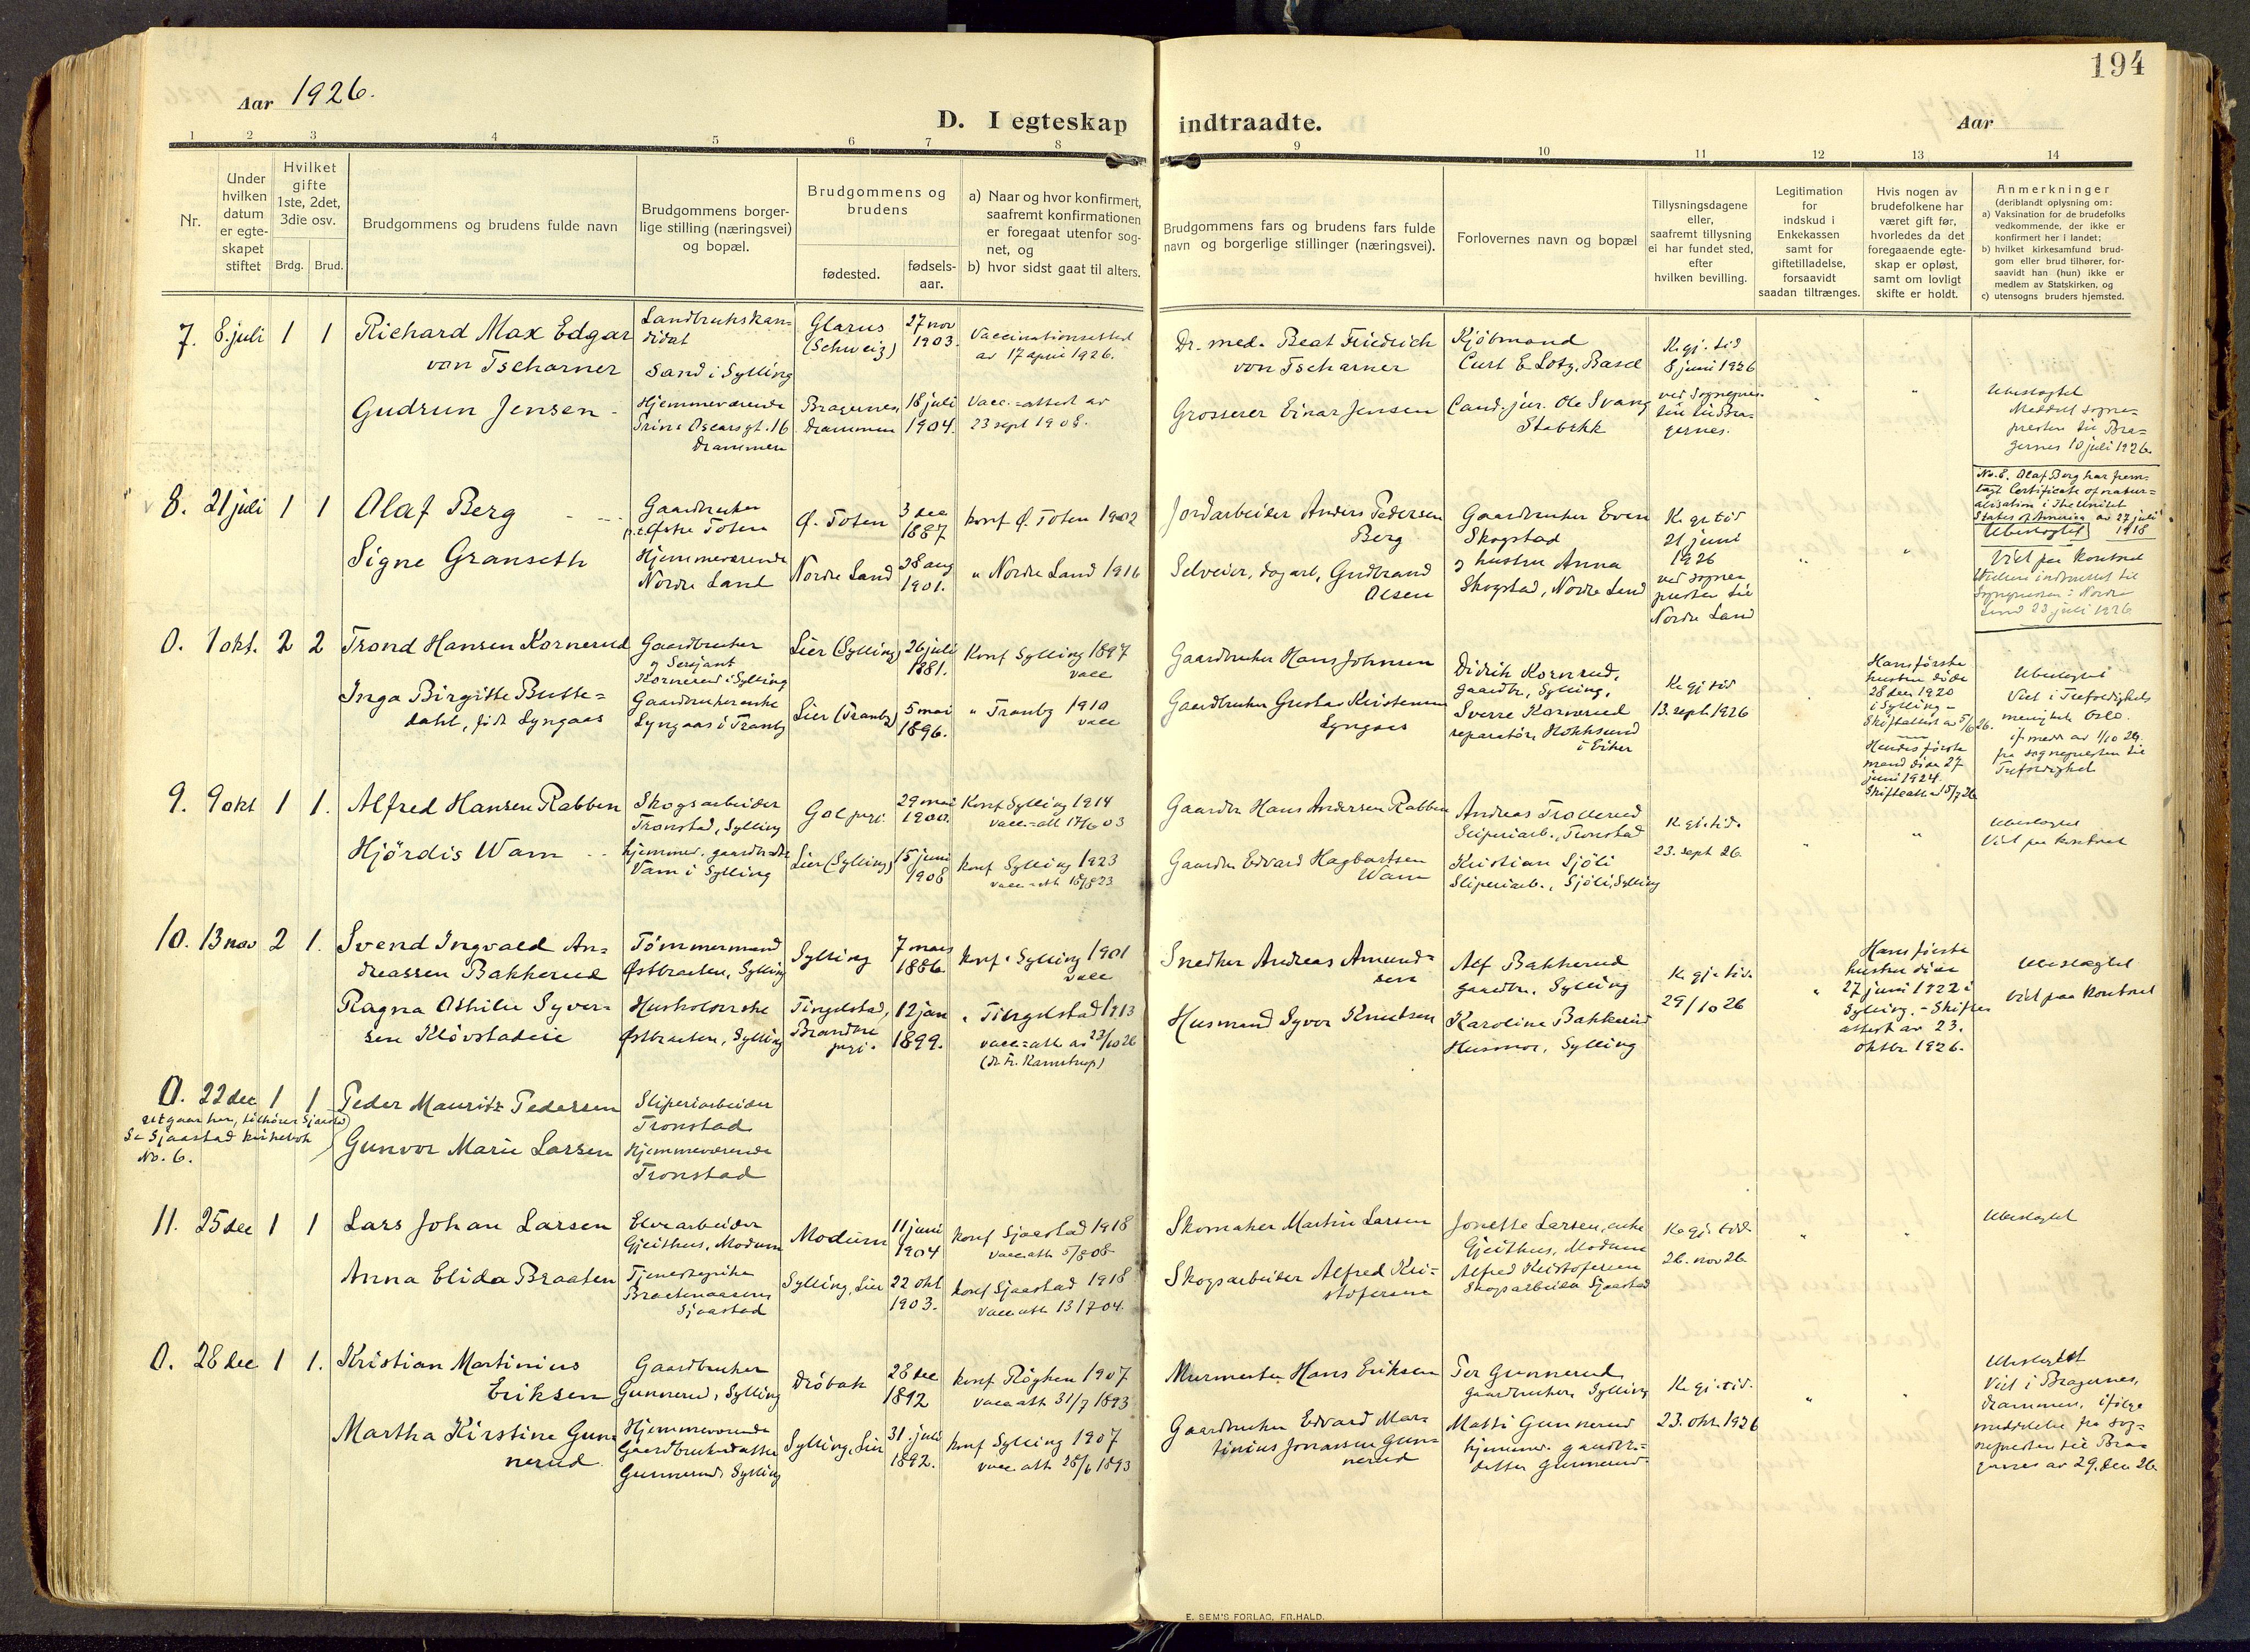 194
Aar 1926.
D. I egteskap indtraadte.
Aar
1 2 3 4 5 6 7 8 9 10 11 12 13 14
Nr.
Under
hvilken
datum
er egte-
skapet
stiftet
Hvilket
gifte
1ste, 2det,
3die osv.
Brdg. Brud.
Brudgommens og brudens fulde navn
Brudgommens borger-
lige stilling (næringsvei)
og bopæl.
Brudgommens og
brudens
fødested.
fødsels-
aar.
a) Naar og hvor konfirmert,
saafremt konfirmationen
er foregaat utenfor sog-
net, og
b) hvor sidst gaat til alters.
Brudgommens fars og brudens fars fulde
navn og borgerlige stillinger (næringsvei).
Forlovernes navn og bopæl
Tillysningsdagene
eller,
saafremt tillysning
ei har fundet sted,
efter
hvilken bevilling.
Legitimation
for
indskud i
Enkekassen
samt for
giftetilladelse,
forsaavidt
saadan tiltrænges.
Hvis nogen av
brudefolkene har
været gift før,
hvorledes da det
foregaaende egte-
skap er opløst,
samt om lovligt
skifte er holdt.
Anmerkninger
(deriblandt oplysning om:
a) Vaksination for de brudefolks
vedkommende, der ikke er
konfirmert her i landet;
b) hvilket kirkesamfund brud-
gom eller brud tilhører, for-
saavidt han (hun) ikke er
medlem av Statskirken, og
c) utensogns bruders hjemsted.
7. 8. juli 1 1
Richard Max Edgar
von Tscharner
Gudrun Jensen
Landbrukskan-
didat
Sand i Sylling
Hjemmeværende
Prins Oscarsgt. 16
Drammen
Glarus
(Schweiz)
27 nov
1903.
Bragernes,
Drammen
18 juli
1904.
Vaccinationsattest
av 17 april 1926.
Vacc.=attest av
23 sept 1908.
Dr. med. Beat Friedrich
von Tscharner
Grosserer Einar Jensen
Kjöbmand
Curt E Lotz, Basel
Cand. jur. Ole Svang
Stabekk
K. gj. tid
8 juni 1926
ved Sognepres-
ten til Bra-
gernes.
Ubeslegtet
Meddelt sogne-
presten til Bra-
gernes 10 juli 1926.
8. 21 juli 1 1
Olaf Berg
Signe Granseth
Gaardbruker
Østre Toten
Hjemmeværende
Nordre Land
Ø. Toten
3 dec
1887
Nordre Land
28 aug
1901.
konf Ø. Toten 1902
" Nordre Land 1916
Jordarbeider Anders Pedersen
Berg
Selveier, dagarb, Gudbrand
Olsen
Gaardbruker Even
Skogstad
og hustru Anna
Skogstad, Nordre Land
K. gj tid
21 juni
1926
ved sogne-
presten til
Nordre Land
No. 8. Olaf Berg har frem-
lagt Certificate of natur-
alisation i The United
States of America av 27 juli
1918
Ubeslegtet
Viet paa kontoret
Vielsen indmeldt til
Sognepresten i Nordre
Land 23 juli 1926
0. 1 okt. 2 2
Trond Hansen Kornerud
Inga Birgitte Butte-
dahl, född Lyngaas
Gaardbruker
og Serjant
Kornerud i Sylling
Gaardbrukerenke
Lyngaas i Tranby
Lier (Sylling)
26 juli
1881.
Lier (Tranby)
5 mai
1896.
Konf Sylling 1897
vacc
" Tranby 1910
vacc
Gaardbruker Hans Johnsen
Gaardbruker Gustav Kristensen
Lyngaas
Didrik Kornrud,
gaardbr, Sylling,
Sverre Kornerud
reparatör, Hokksund
i Eiker
K gj tid
13. sept. 1926
Hans förste
hustru döde
28 dec 1920
i Sylling -
Skifteattest av 5/6 26.
Hendes förste
mand döde 27
juni 1924.
Skifteatt. av 15/7 26
Ubeslegtet
Viet i Trefoldighets
menighet Oslo.
if. medd av 1/10 26.
fra sognepresten til
Trefoldighet
9. 9 okt 1 1.
Alfred Hansen Rabben
Hjördis Warn
Skogsarbeider
Tronstad, Sylling
hjemmev. gaardbr.datter
Varn i Sylling
Gol prgj.
29 mai
1900.
Lier (Sylling)
15 juni
1908
Konf Sylling 1914
vacc.=att 17/6 03
konf Sylling 1923
vacc=att 18/8 23
Gaardbr Hans Andersen Rabben
Gaardbr Edvard Hagbartsen
Warn
Andreas Trollerud
Sliperiarb., Tronstad
Kristian Sjöli
Sliperiarb., Sjöli, Sylling
K. gj. tid.
23. sept 26.
Ubeslegtet
Viet paa kontoret
10. 13 nov 2 1.
Svend Ingvald An-
dreassen Bakkerud
Ragna Othilie Syver-
sen Klövstadeie
Tömmermand
Østbraaten, Sylling
Husholderske
Østbraaten, Sylling
Sylling
7 mars
1886.
Tingelstad,
Brandbu
prgj.
12 jan
1899.
konf. Sylling 1901
vacc
" Tingelstad 1913
vacc=att av 23/10 26
(dr Fr. Ramstrup)
Snedker Andreas Amund-
sen
Husmand Syver Knutsen
Alf Bakkerud
gaardbr. Sylling
Karoline Bakkerud
Husmor, Sylling
K gj. tid.
29/10 26
Hans förste
hustru döde
27 juni 1922 i
Sylling. - Skifte-
attest av 23.
oktbr 1926.
Ubeslegtet
Viet paa kontoret
0. 22 dec 1 1
Peder Mauritz Pedersen
Gunvor Marie Larsen
Sliperiarbeider
Tronstad
Hjemmeværende
Tronstad
utgaar her, tilhörer Sjaastad
Se Sjaastad kirkebok
No. 6.
11. 25 dec 1 1
Lars Johan Larsen
Anna Elida Braaten
Elvearbeider
Gjeithus, Modum
Tjenestepike
Braatenaasen,
Sjaastad
Modum
11 juni
1904
Sylling, Lier
22 okt
1903.
konf Sjaastad 1918
vacc att 5/8 08
konf Sjaastad 1918
Vacc att 13 1704.
Skomaker Martin Larsen
Skogsarbeider Alfred Kri-
stofersen
Jonette Larsen, enke
Gjeithus, Modum
Alfred Kristofersen
Skogsarbeider Sjaastad
K. gj. tid
26. nov 26
Ubeslegtet
0. 28 dec 1 1.
Kristian Martinius
Eriksen
Martha Kirstine Gun-
nerud
Gaardbruker
Gunnerud, Sylling
Hjemmeværende
Gaardbrukerdatter
Gunnerud, Sylling
Dröbak
28 dec
1892
Sylling, Lier
31. juli
1892.
konf Röyken 1907
vacc att 31/7 1893
konf Sylling 1907
vacc att 28/6 1893
Murmester Hans Eriksen
Gaardbruker Edvard Mar-
tinius Jonassen Gun-
nerud
Per Gunnerud
gaardbruker, Sylling
Mathi Gunnerud
hjemmev. gaardbr.-
datter Gunnerud
K. gj. tid.
23. okt. 1926
Ubeslegtet
Viet i Bragernes,
Drammen, ifölge
meddelelse fra sog-
nepresten til Bra-
gernes av 29. dec 26.
E. SEM'S FORLAG, FR.HALD.